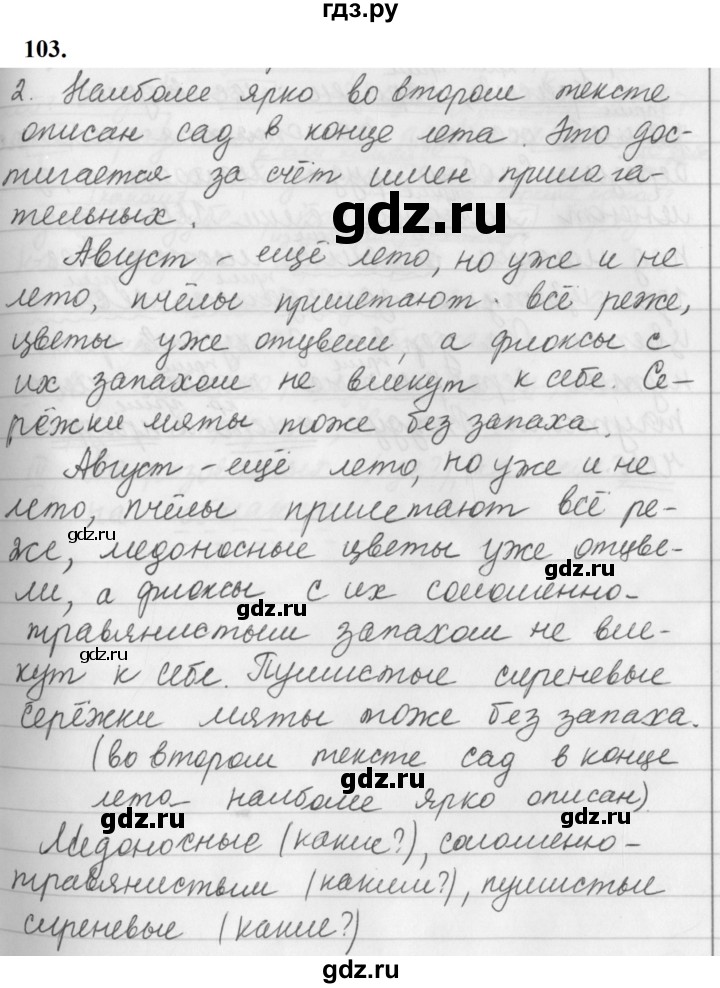 гдз.ру
103.
2. Наиболее ярко во втором тексте
описан сад в конце лета. Это дос-
тигается за счёт имен прилага-
тельных.
gdz.ru
Август - ещё лето, но уже и не
лето, пчёлы прилетают всё реже,
цветы уже отцвели, а флоксы с
их запахом не влекут к себе. Се-
рёжки мяты тоже без запаха.
Август - ещё лето, но уже и не
лето, пчёлы прилетают всё ре-
gdz.ru
же, медоносные цветы уже отцве-
gdz.ru
ли, а флоксы с их соломенно-
gdz.ru
травянистым запахом не вле-
gdz.ru
кут к себе. Пушистые сиреневые
серёжки мяты тоже без запаха.
(во втором тексте сад в конце
gdz.ru
лета наиболее ярко описан)
gdz.ru
Медоносные (какие?), соломенно-
травянистым (каким?), пушистые
сиреневые (какие?)
gdz.ru